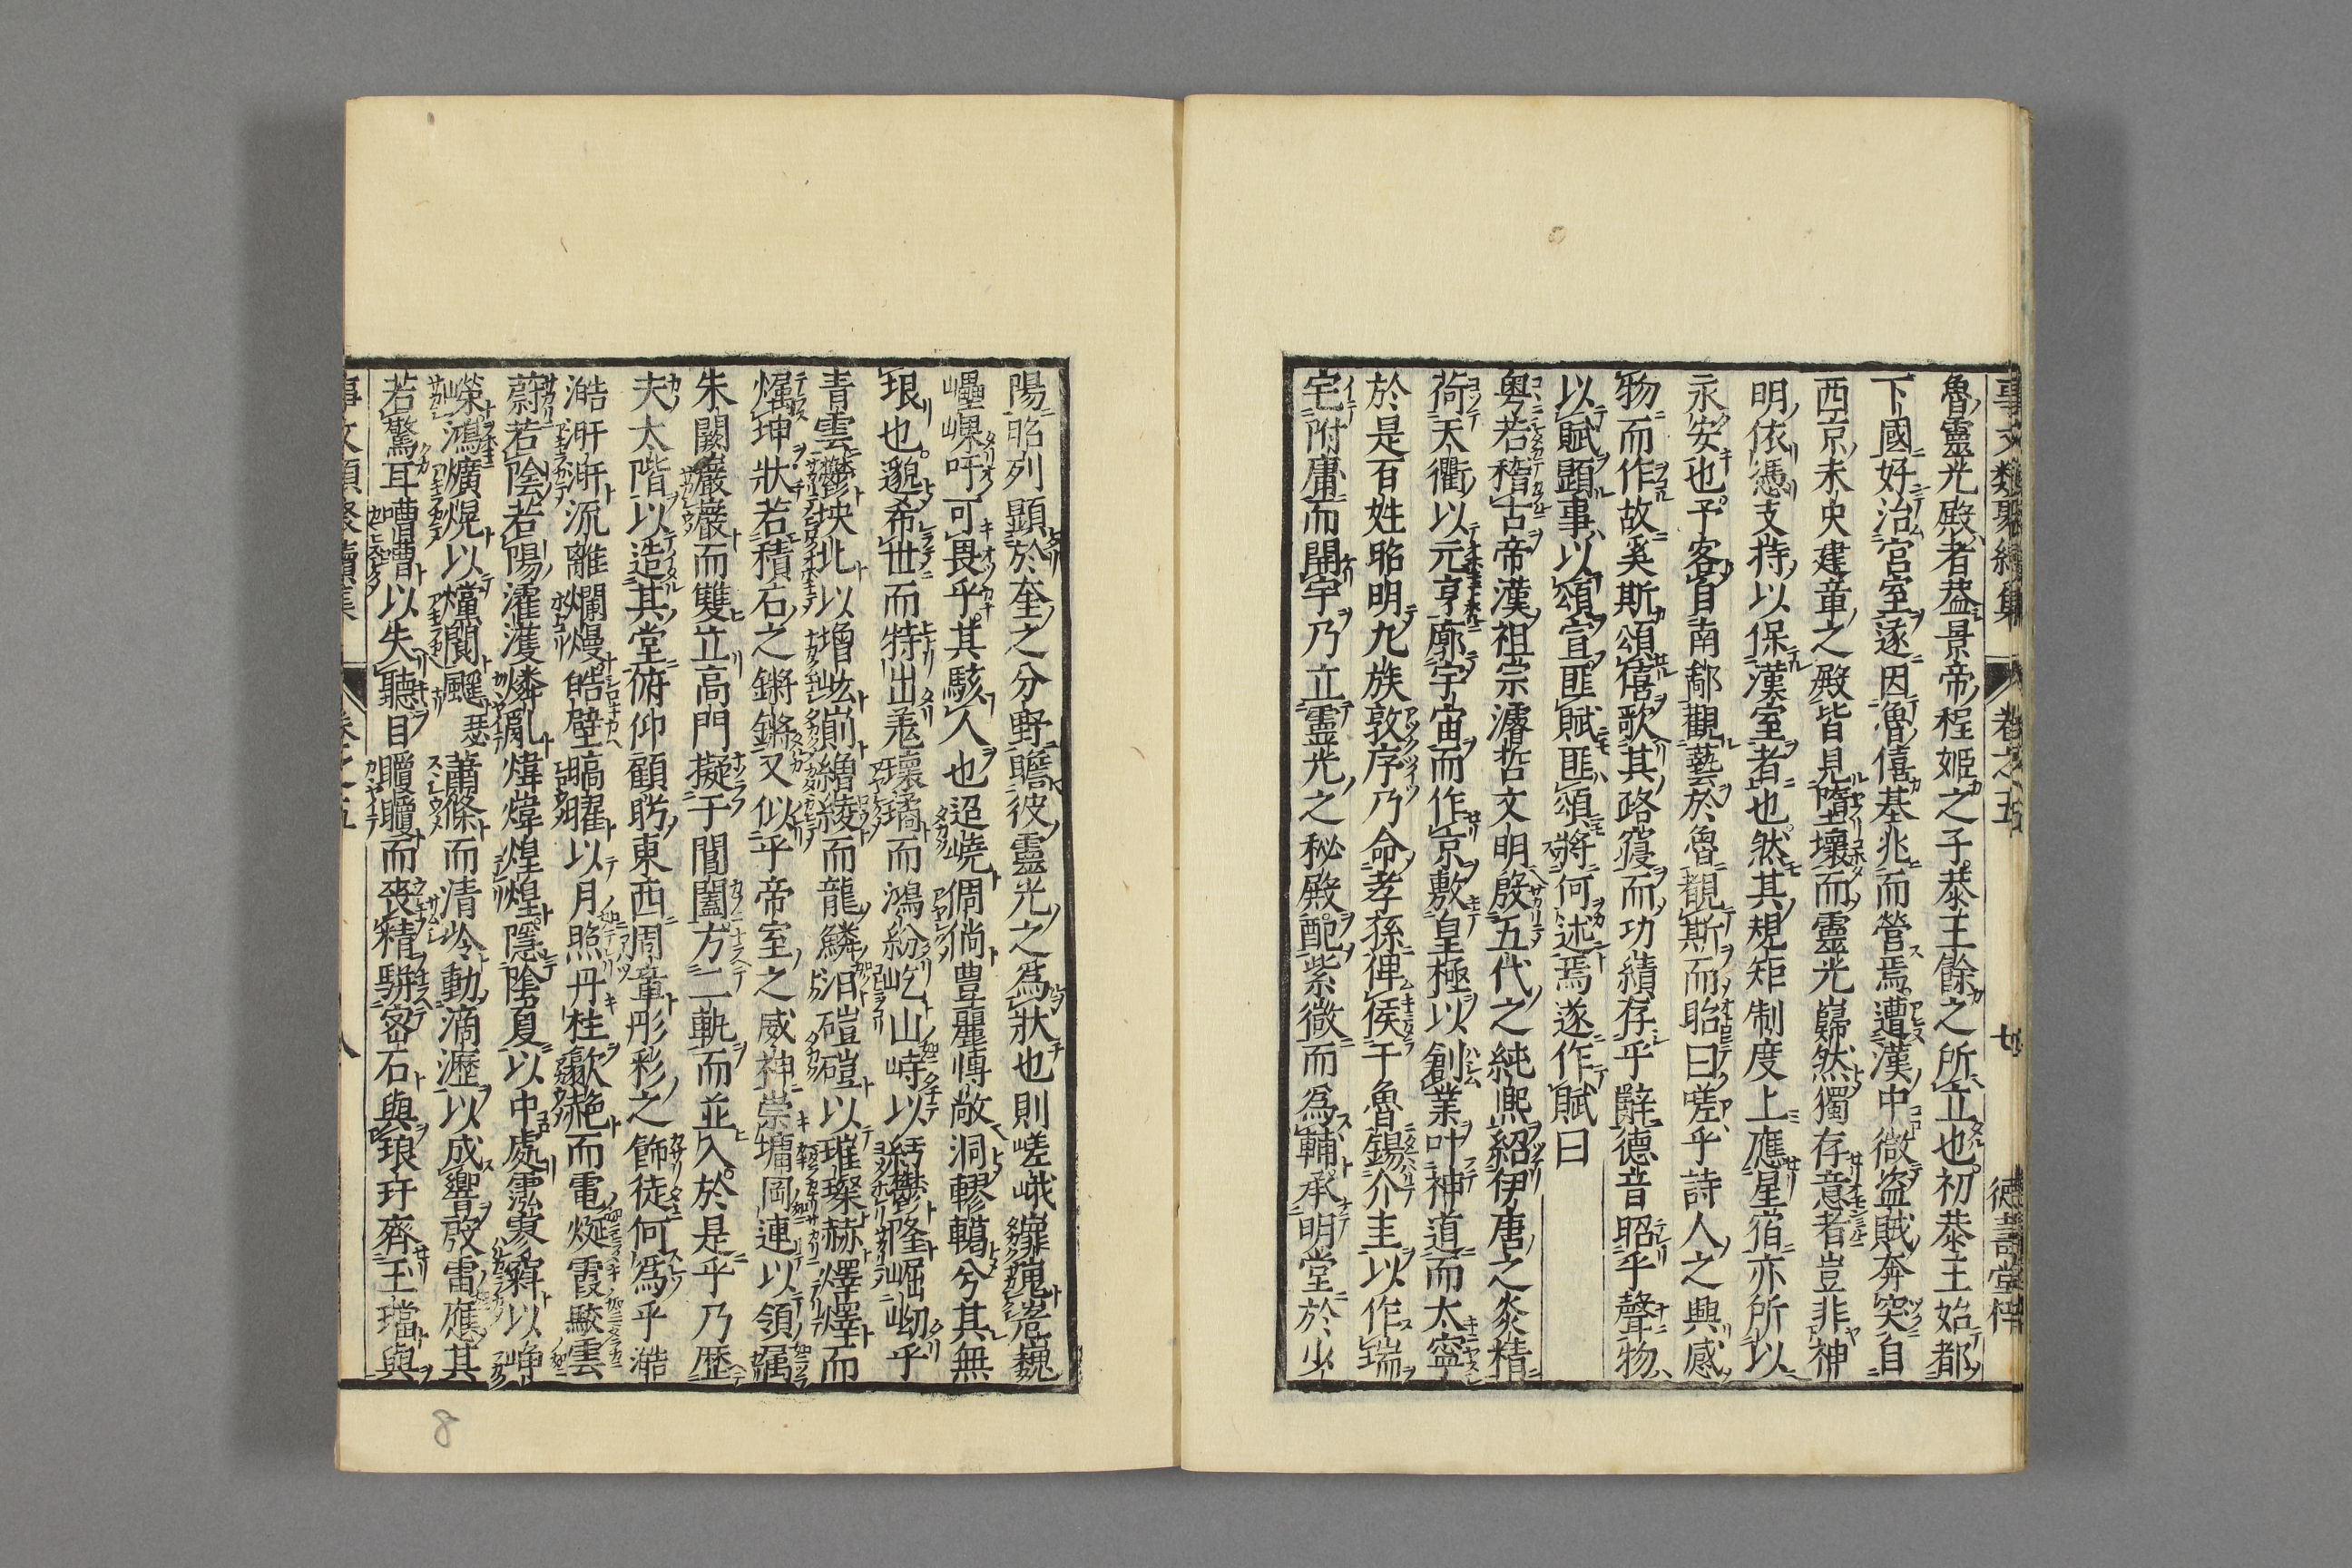 魯靈光殿者葢景帝程姬之子恭王餘之所立也初恭王始都
下國好治宮室遂因魯僖基兆而營焉遭漢中微盗賊奔突自
西京未央建章之殿皆見隳壞而靈光巋然獨存意者豈非神
明依憑支持以保漢室者也然其規矩制度上應星宿亦所以
永安也予客自南鄙觀藝於魯覩斯而眙曰嗟乎詩人之興感
物而作故奚斯頌僖歌其路寢而功績存乎辭德音昭乎聲物
以賦顕事以頌宣匪賦匪頌將何述焉遂作賦曰
粤若稽古帝漢祖宗濬哲文明殷五代之純凞紹伊唐之炎精
荷天衢以元亨廓宇宙而作京敷皇極以創業叶神道而太寧
於是百姓昭明九族敦序乃命孝孫俾侯于魯錫介圭以作瑞
宅附庸而開宇乃立霊光之秘殿配紫微而為輔承明堂於少
陽昭列顕於奎之分野瞻彼靈光之為狀也則嵯峨嶵嵬峞巍
㠥嵲吁可畏乎其駭人也迢嶢倜倘豊麗博敞洞轇轕兮其無
垠也邈希世而特出羗瓌璚而鴻紛屹山峙以紆鬱隆崛岉乎
青雲鬱坱圠以增㟄崱繒綾而龍鱗汨磑磑以璀璨赫燡燡而
爥坤狀若積石之鏘鏘又似乎帝室之威神崇墉岡連以領属
朱闕巌巌而雙立高門擬于閶闔方二軌而並入於是乎乃歴
夫太階以造其堂俯仰顧眄東西周章彤彩之飾徒何為乎澔
澔涆涆流離爛熳皓壁暠曜以月照丹柱歙赩而電烻霞駮雲
蔚若陰若陽瀖濩燐亂煒煒煌煌隱陰夏以中處霐寥窲以崢
嶸鴻爌熀以爣閬飋蕭條而清泠動滴瀝以成響殷雷應其
若驚耳嘈嘈以失聽目矎矎而䘮精駢密石與琅玕齊玉璫與
卷之五